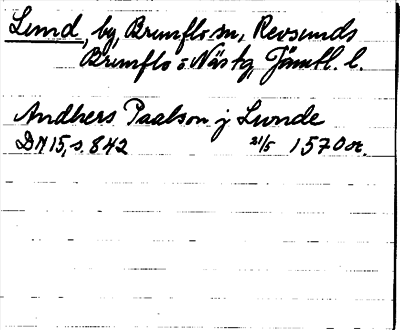 Lund, by, Brunflo sn, Revsunds
Brunflo o Näs tg, Jämtl. l.
Andhers Paalson j Lunde
DN 15, s. 842 21/5 1570 or.